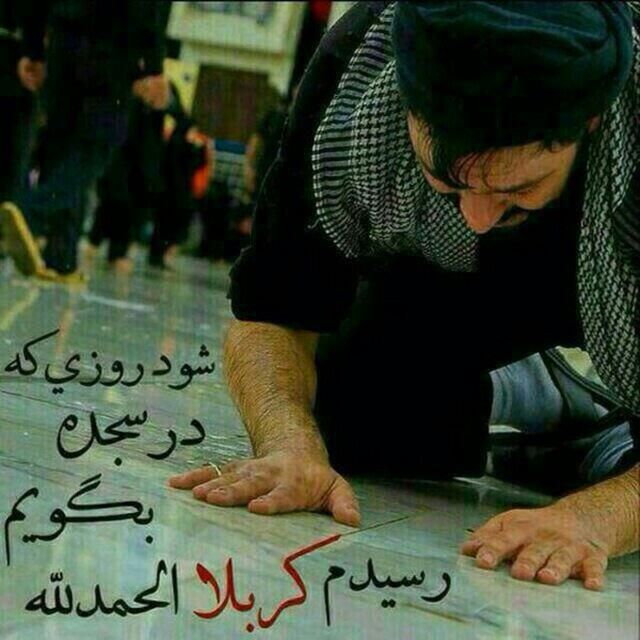 شود روزي که
در سجده
بگويم
رسیدم کربلا الحمدلله